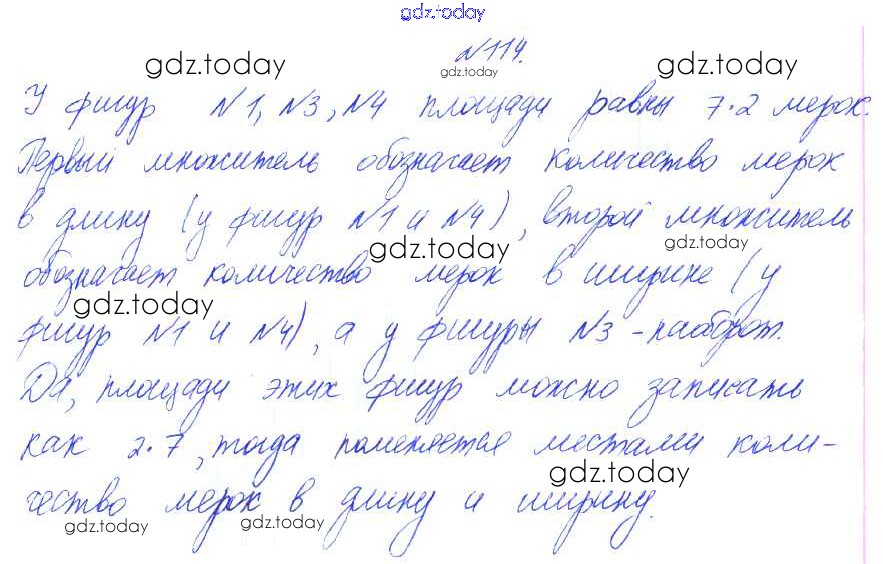 gdz.today
№114.
gdz.today gdz.today gdz.today
У фигур №1, №3, №4 площади равны 7·2 мерок.
Первый множитель обозначает количество мерок
в длину (у фигур №1 и №4), второй множитель
gdz.today gdz.today
обозначает количество мерок в ширине (у
gdz.today
фигур №1 и №4), а у фигуры №3 - наоборот.
Да, площади этих фигур можно записать
как 2·7, тогда поменяется местами коли-
gdz.today
чество мерок в длину и ширину.
gdz.today gdz.today